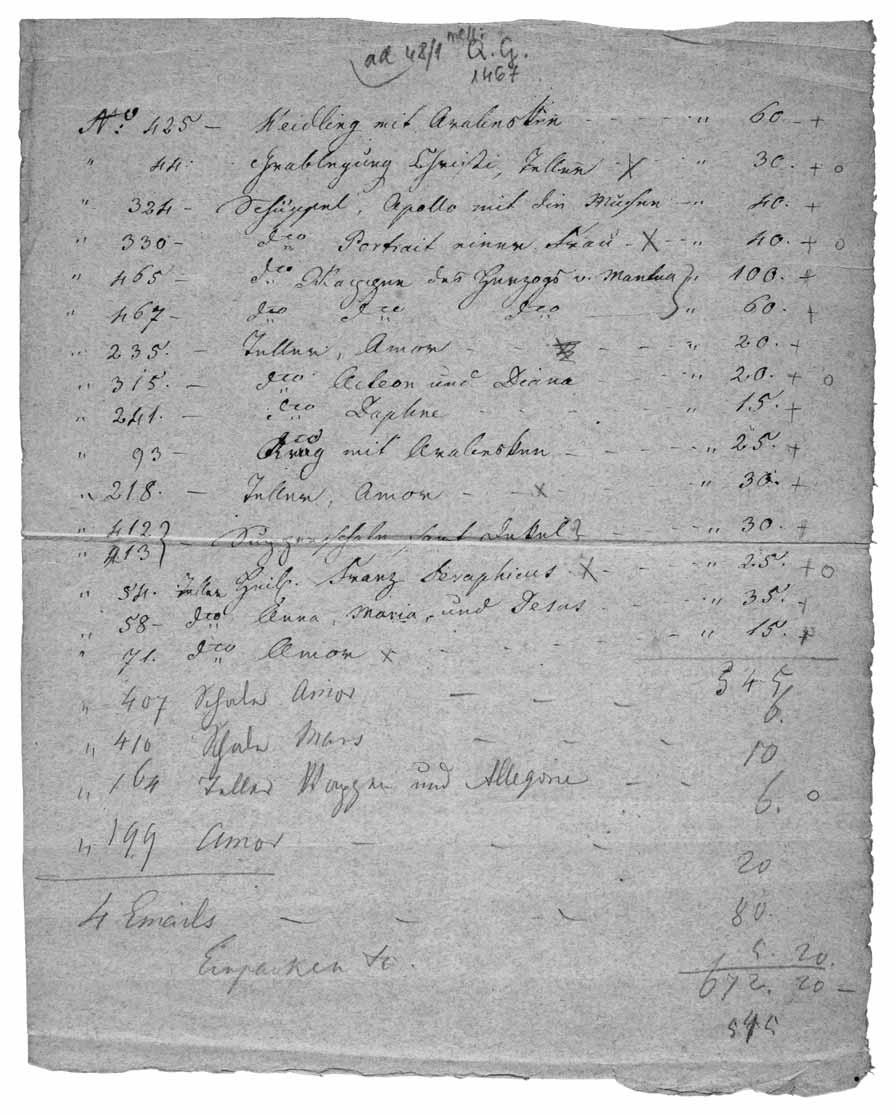 ad 48/1 Q. G.
1467
No. 425 — Weidling mit Arabesken - - - " 60. — +
" 44. Grablegung Christi, Teller X - " 30. + o
" 324 — Schüssel, Apollo mit die Musen — " 40. +
" 330 — dto Portrait einer Frau - X - - " 40. + o
" 465 — dto Wappen des Herzogs v. Mantua } " 100. +
" 467 — dto dto dto } " 60. +
" 235. — Teller, Amor - - - - " 20. +
" 315. — dto Acteon und Diana - - - " 20. + o
" 241. — dto Daphne - - - - " 15. +
" 93 — Krug mit Arabesken - - - - " 25. +
" 218. — Teller, Amor - - x - - " 30. +
" 412 } — Suppenschale, samt Dekel } - - - " 30. +
" 413 }
" 54. Teller Heil. Franz Seraphicus X - - - " 25. + o
" 58 — dto Anna, Maria, und Jesus - - " 35. +
" 71. dto Amor x - - - - " 15. +
545
" 407 Schale Amor — — — 6.
" 410 Schale Mars — — — 10
" 164 Teller Wappen und Allegorie — — 6. o
" 199 Amor — — — 20
4 Emails — — — 80.
Einpacken &c. 5. 20.
672. 20 —
545